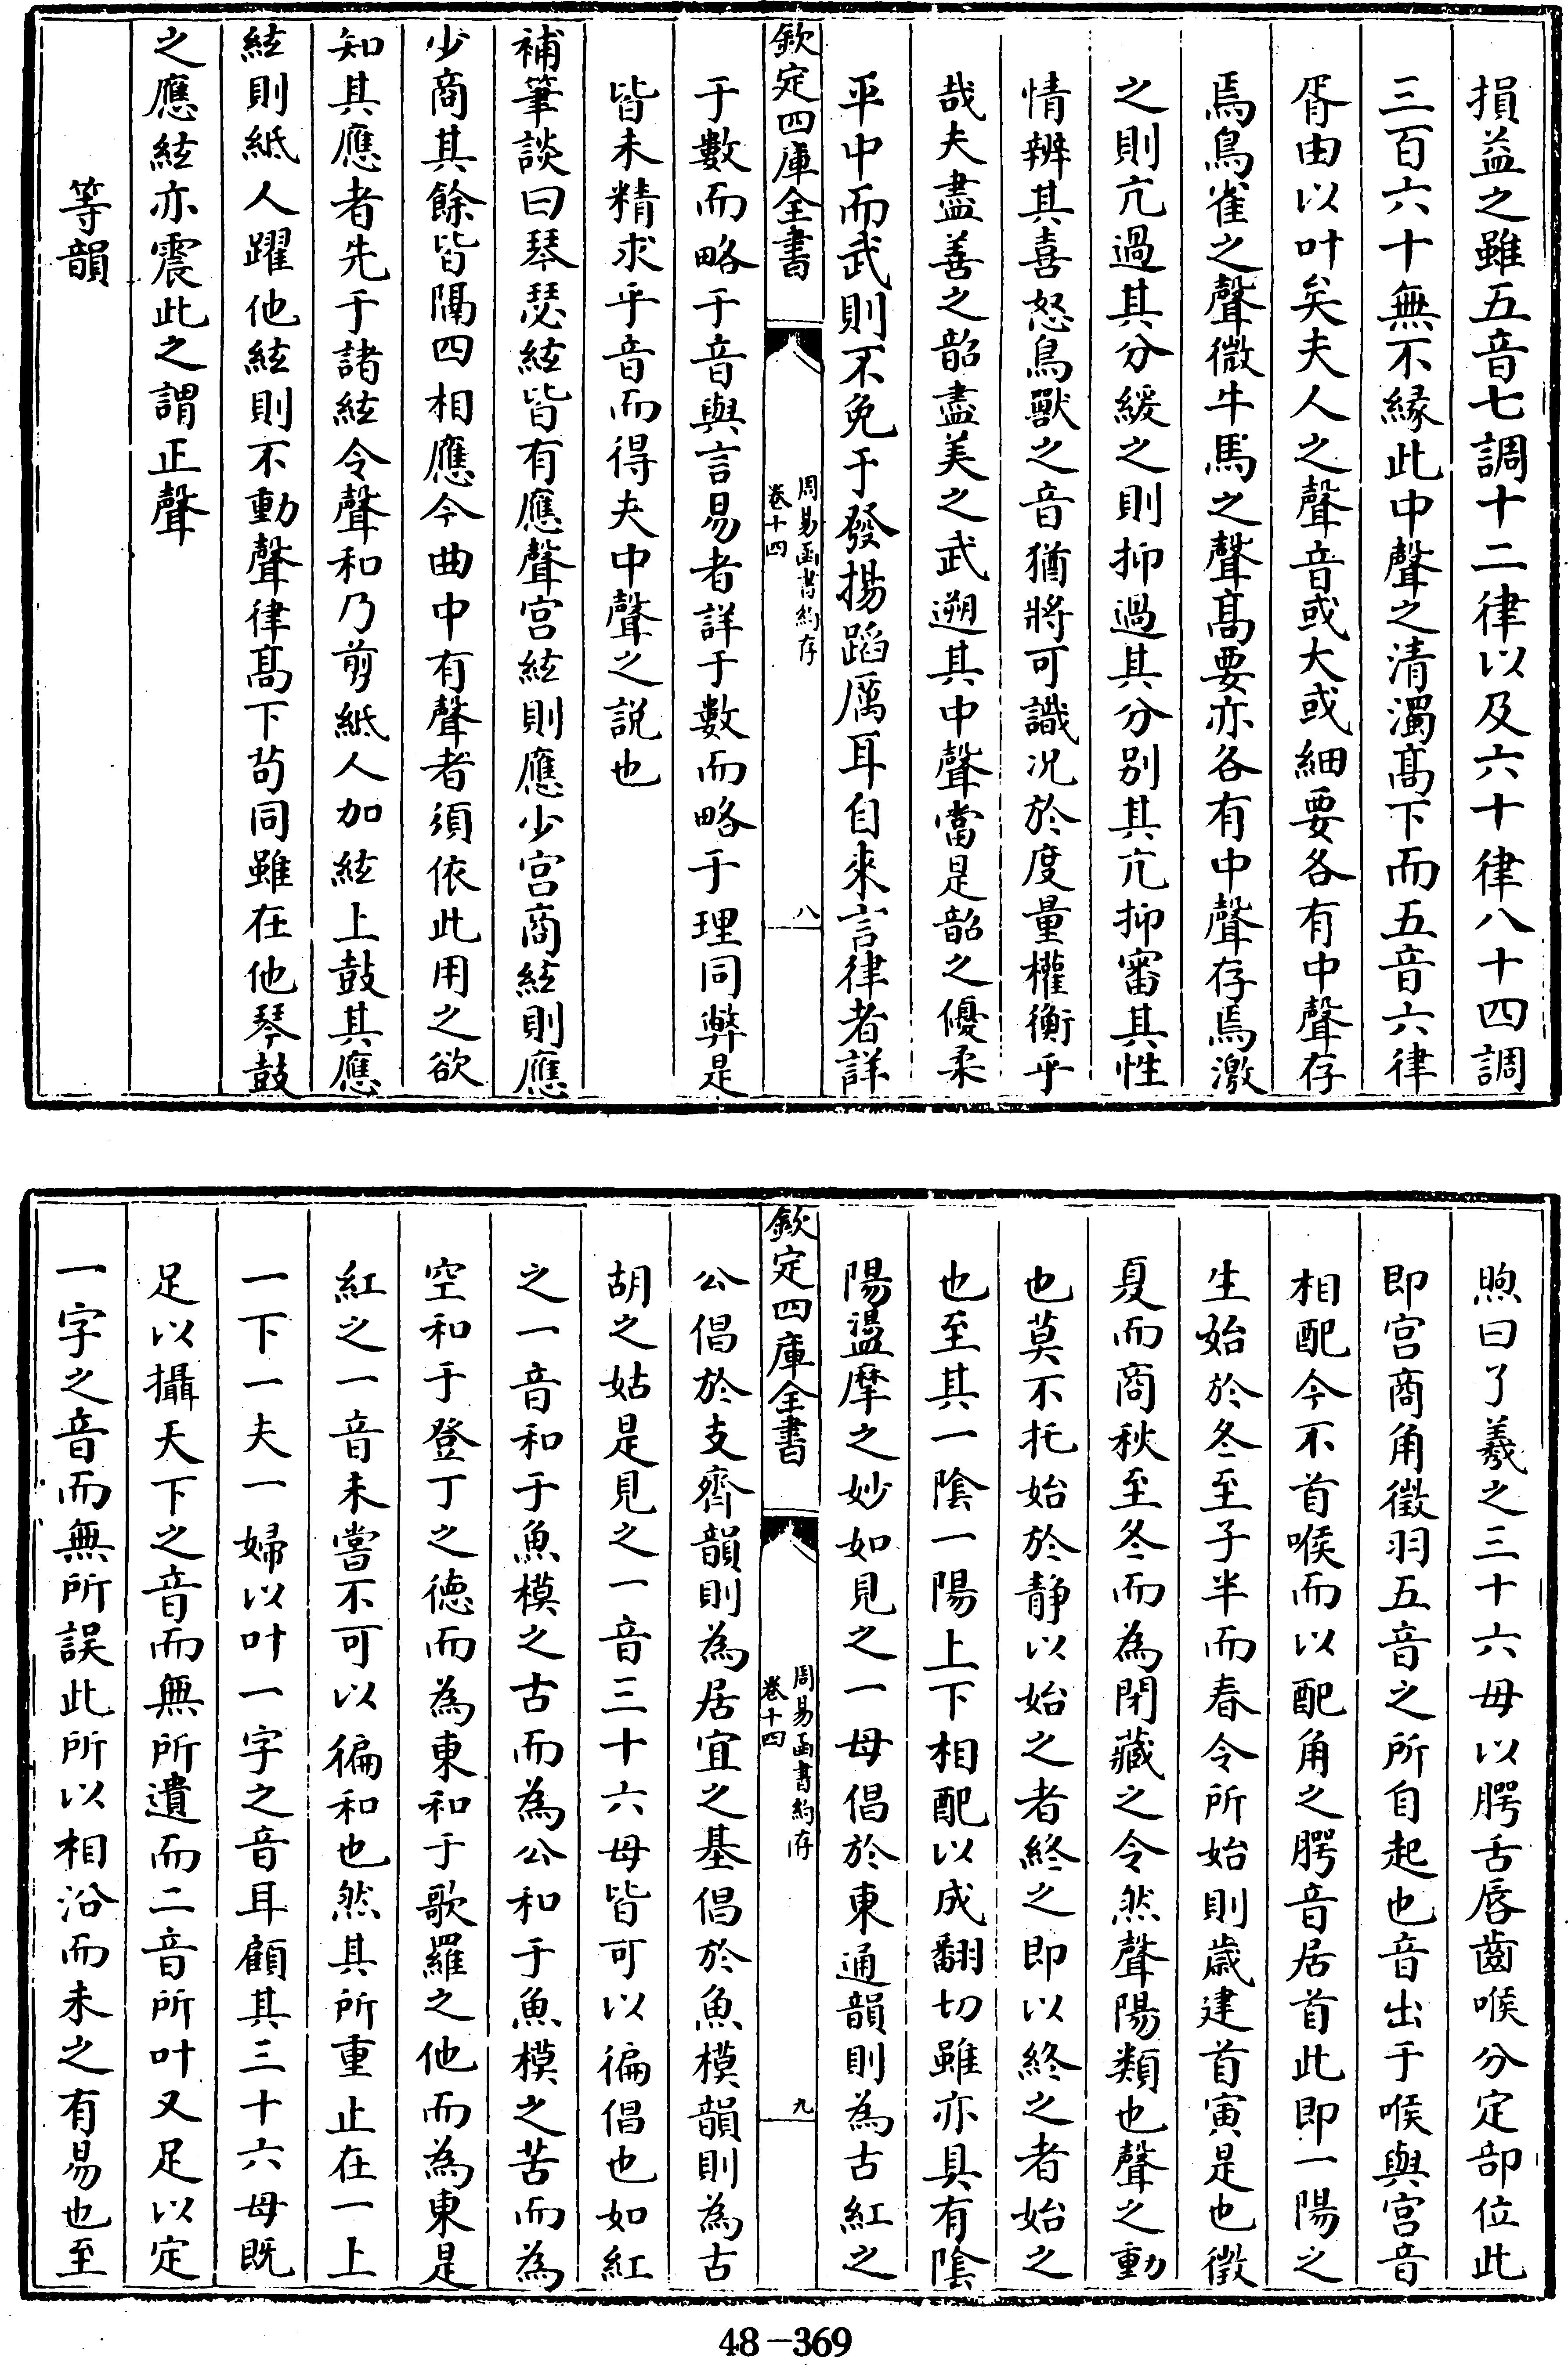 損益之雖五音七調十二律以及六十律八十四調
三百六十無不縁此中聲之清濁髙下而五音六律
胥由以叶矣夫人之聲音或大或細要各有中聲存
焉鳥雀之聲微牛馬之聲髙要亦各有中聲存焉激
之則亢過其分緩之則抑過其分别其亢抑審其性
情辨其喜怒鳥獸之音猶將可識况於度量權衡乎
哉夫盡善之韶盡美之武遡其中聲當是韶之優柔
平中而武則不免于發揚蹈厲耳自來言律者詳
欽定四庫全書
周易函書約存
卷十四
八
于數而略于音與言易者詳于數而略于理同弊是
皆未精求乎音而得夫中聲之説也
補筆談曰琴瑟絃皆有應聲宫絃則應少宫商絃則應
少商其餘皆隔四相應今曲中有聲者須依此用之欲
知其應者先于諸絃令聲和乃剪紙人加絃上鼓其應
絃則紙人躍他絃則不動聲律髙下茍同雖在他琴鼓
之應絃亦震此之謂正聲
等韻
煦曰了義之三十六母以腭舌唇齒喉分定部位此
即宫商角徵羽五音之所自起也音出于喉與宫音
相配今不首喉而以配角之腭音居首此即一陽之
生始於冬至子半而春令所始則歲建首寅是也徵
夏而商秋至冬而為閉藏之令然聲陽類也聲之動
也莫不托始於静以始之者終之即以終之者始之
也至其一陰一陽上下相配以成翻切雖亦具有陰
陽盪摩之妙如見之一母倡於東通韻則為古紅之
欽定四庫全書
周易函書約存
卷十四
九
公倡於支齊韻則為居宜之基倡於魚模韻則為古
胡之姑是見之一音三十六母皆可以徧倡也如紅
之一音和于魚模之古而為公和于魚模之苦而為
空和于登丁之德而為東和于歌羅之他而為東是
紅之一音未嘗不可以徧和也然其所重止在一上
一下一夫一婦以叶一字之音耳顧其三十六母既
足以攝天下之音而無所遺而二音所叶又足以定
一字之音而無所誤此所以相沿而未之有易也至
48-369